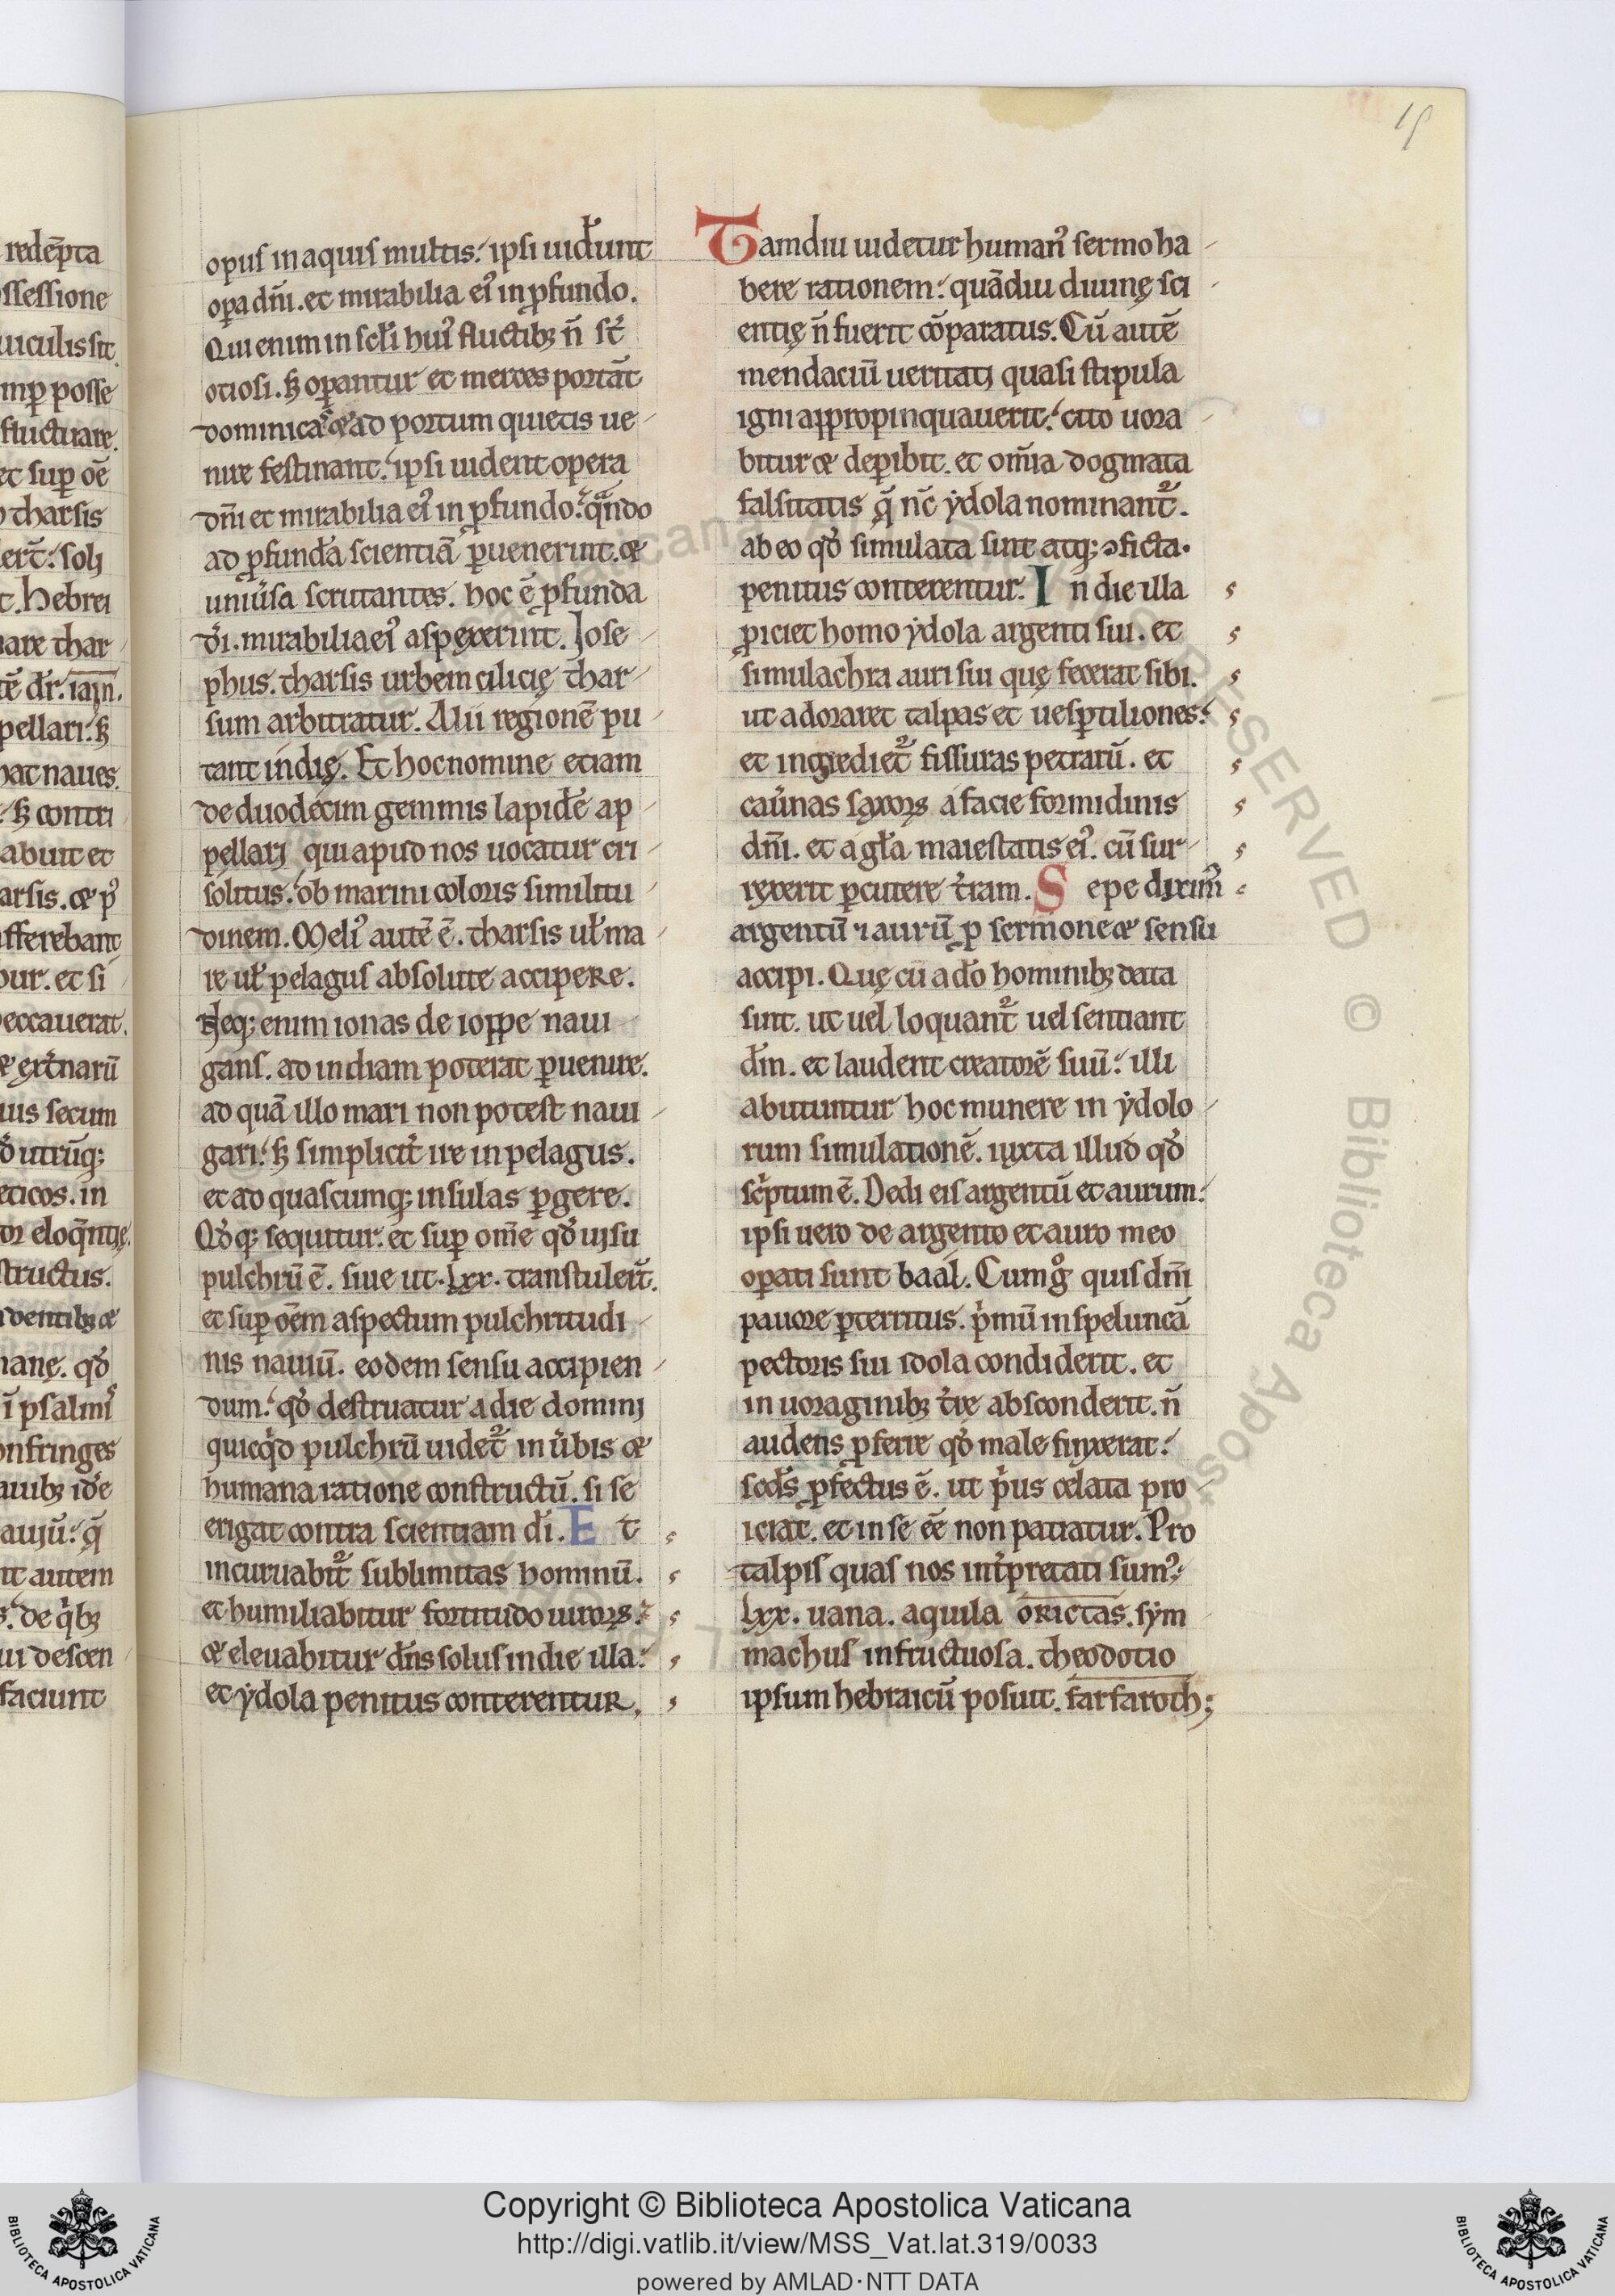 15
redēpta
ssessione
uiculis sit
mꝑ posse
fluctuare.
et suꝑ oē
tharsis
ert̄. soli
t. hebrei
are thar
tē dr̄. iam.
pellari. sꝫ
hat naues.
sꝫ contri
abuit et
arsis. & pꝰ
fferebant
our. et si
eccauerat.
uis secum
utrūqꝫ
eticos. in
or eloq̄ntię.
structus.
dentibꝫ &
manę. qd̓
ī psalmͦ
onfringes
auibꝫ id̓e
t autem
de qͥbꝫ
ui descen
faciunt
opus in aquis multis. ipsi uid̓unt
oꝑa dn̄i. et mirabilia eiꝰ in ꝓfundo.
Qui enim in scl̓i huiꝰ fluctibꝫ n̄ st̄
otiosi. sꝫ oꝑantur et merces portāt
dominicas & ad portum quietis ue
nire festinant. ipsi uident opera
dn̄i et mirabilia eiꝰ in ꝓfundo. qn̄do
ad ꝓfunda scientiā ꝑuenerint. &
uniu̓sa scrutantes. hoc ē ꝓfunda
d̓i. mirabilia eiꝰ aspexerint. Iose
phus. tharsis urbem cilicię thar
sum arbitratur. Alii regionē pu
tant indię. Et hoc nomine etiam
de duodecim gemmis lapidē ap
pellari qui apud nos uocatur cri
solitus. ob marini coloris similitu
dinem. Meliꝰ autē ē. tharsis ul̓ ma
re ul̓ pelagus absolute accipere.
Neqꝫ enim ionas de ioppe naui
gans. ad indiam poterat ꝑuenire.
ad quā illo mari non potest naui
gari. sꝫ simplicit̓ ire in pelagus.
et ad quascumqꝫ insulas ꝑgere.
Qd̓qꝫ sequitur. et suꝑ om̄e qd̓ uisu
pulchrū ē. siue ut .lxx. transtuler̄t.
et suꝑ oēm aspectum pulchritudi
nis nauiū. eodem sensu accipien
dum. qd̓ destruatur a die domini
quicqͥd pulchrū uidet᷑ in u̓bis &
humana ratione constructū. si se
erigat contra scientiam d̓i. E t
incuruabit᷑ sublimitas hominū.
et humiliabitur fortitudo uiroꝝ.
& eleuabitur dn̄s solus in die illa.
et ẏdola penitus conterentur.
Tamdiu uidetur humanꝰ sermo ha
bere rationem. quādiu diuinę sci
entię n̄ fuerit cōparatus. Cū autē
mendaciū ueritati quasi stipula
igni appropinquauerit. cito uora
bitur & deꝑibit. et om̄ia dogmata
falsitatis q̄ nc̄ ẏdola nominant᷑.
ab eo qd̓ simulata sint atqꝫ ꝯficta.
penitus conterentur. I n die illa
ꝓiciet homo ẏdola argenti sui. et
simulachra auri sui quę fecerat sibi.
ut adoraret talpas et uesꝑtiliones.
et ingrediet᷑ fissuras petrarū. et
cau̓nas saxoꝝ a facie formidinis
dn̄i. et a gl̓a maiestatis eiꝰ. cū sur
rexerit ꝑcutere t̓ram. S epe diximꝰ
argentū ⁊ aurū ꝓ sermone & sensu
accipi. Quę cū a do hominibꝫ data
sint. ut uel loquant᷑ uel sentiant
dm̄. et laudent creatorē suū. illi
abutuntur hoc munere in ẏdolo
rum simulationē. iuxta illud qd̓
scͥptum ē. Dedi eis argentū et aurum.
ipsi uero de argento et auro meo
oꝑati sunt baal. Cum gͦ quis dn̄i
pauore ꝑterritus. pͥmū in speluncā
pectoris sui idola condiderit. et
in uoraginibꝫ t̓re absconderit. n̄
audens ꝓferre qd̓ male finxerat.
scd̓s ꝓfectus ē. ut pͥus celata pro
iciat. et in se eē non patiatur. Pro
talpis quas nos int̓pretati sumꝰ.
lxx. uana. aquila orictas. sẏm
machus infructuosa. theodotio
ipsum hebraicū posuit. farfaroth;
Copyright © Biblioteca Apostolica Vaticana
http://digi.vatlib.it/view/MSS_Vat.lat.319/0033
powered by AMLAD·NTT DATA
BIBLIOTECA APOSTOLICA VATICANA
BIBLIOTECA APOSTOLICA VATICANA